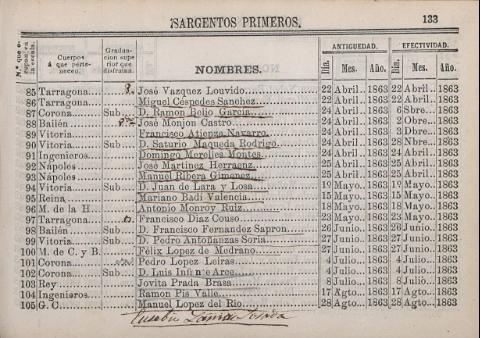 SARGENTOS PRIMEROS. 133
N.º que ocupan en la escala. Cuerpos á que pertenecen. Graduacion superior que disfrutan. NOMBRES. ANTIGUEDAD. EFECTIVIDAD.
Dia. Mes. Año. Dia. Mes. Año.
85 Tarragona José Vazquez Louvido 22 Abril 1863 22 Abril 1863
86 Tarragona Miguel Céspedes Sanchez 22 Abril 1863 22 Abril 1863
87 Corona Sub D. Ramon Bello Garcia 24 Abril 1863 6 Sbre 1863
88 Bailén José Monjon Castro 24 Abril 1863 2 Obre 1863
89 Vitoria Francisco Atienza Navarro 24 Abril 1863 3 Dbre 1863
90 Vitoria Sub D. Saturio Maqueda Rodrigo 24 Abril 1863 28 Nbre 1863
91 Ingenieros Domingo Merelles Montes 24 Abril 1863 24 Abril 1863
92 Nápoles José Martinez Herraenz 25 Abril 1863 25 Abril 1863
93 Nápoles Manuel Ribera Gimenez 25 Abril 1863 25 Abril 1863
94 Vitoria Sub D. Juan de Lara y Losa 1º Mayo 1863 1º Mayo 1863
95 Reina Mariano Badi Valencia 15 Mayo 1863 15 Mayo 1863
96 M. de la H Antonio Monroy Ruiz 18 Mayo 1863 18 Mayo 1863
97 Tarragona Francisco Diaz Couso 23 Mayo 1863 23 Mayo 1863
98 Bailén Sub D. Francisco Fernandez Sapron 26 Junio 1863 26 Junio 1863
99 Vitoria Sub D. Pedro Antoñanzas Soria 27 Junio 1863 27 Junio 1863
100 M. de C. y B. Félix Lopez de Medrano 27 Junio 1863 27 Junio 1863
101 Corona Pedro Lopez Leiras 4 Julio 1863 4 Julio 1863
102 Corona Sub D. Luis Infante Arce 4 Julio 1863 4 Julio 1863
103 Rey Jovita Prada Brasa 8 Julio 1863 8 Julio 1863
104 Ingenieros Ramon Pis Valle 17 Agto 1863 17 Agto 1863
105 G. C. Manuel Lopez del Rio 28 Agto 1863 28 Agto 1863